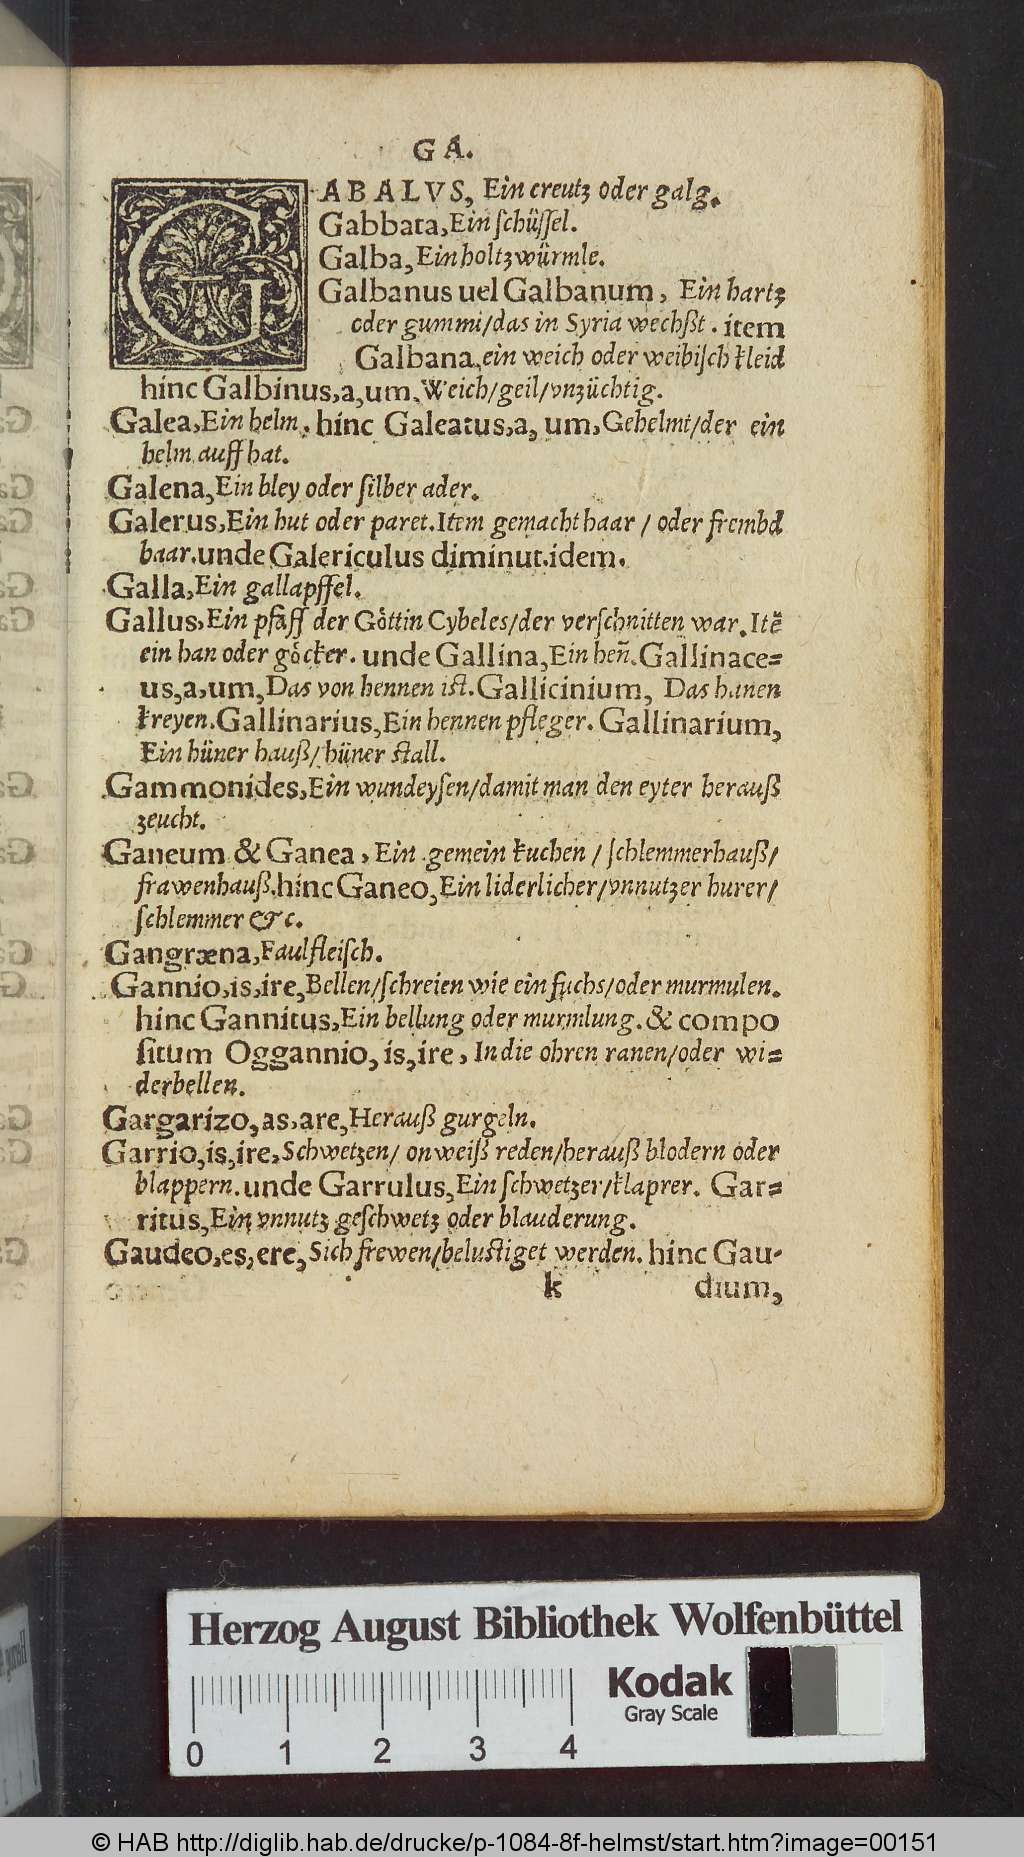 GA.
GABALVS, Ein creutz oder galg.
Gabbata, Ein schüssel.
Galba, Ein holtzwürmle.
Galbanus uel Galbanum, Ein hartz
oder gummi/das in Syria wechßt. item
Galbana, ein weich oder weibisch kleid
hinc Galbinus, a, um, Weich/geil/vnzüchtig.
Galea, Ein helm. hinc Galeatus, a, um, Gehelmt/der ein
helm auff hat.
Galena, Ein bley oder silber ader.
Galerus, Ein hut oder paret. Item gemacht haar / oder frembd
haar. unde Galericulus diminut. idem.
Galla, Ein gallapffel.
Gallus, Ein pfaff der Göttin Cybeles/der verschnitten war. Itẽ
ein han oder göcker. unde Gallina, Ein heñ. Gallinace=
us, a, um, Das von hennen ist. Gallicinium, Das hanen
kreyen. Gallinarius, Ein hennen pfleger. Gallinarium,
Ein hüner hauß/hüner stall.
Gammonides, Ein wundeysen/damit man den eyter herauß
zeucht.
Ganeum & Ganea, Ein gemein kuchen / schlemmerhauß/
frawenhauß. hinc Ganeo, Ein liderlicher/vnnutzer hurer/
schlemmer &c.
Gangræna, Faulfleisch.
Gannio, is, ire, Bellen/schreien wie ein fuchs/oder murmulen.
hinc Gannitus, Ein bellung oder murmlung. & compo
situm Oggannio, is, ire, In die ohren ranen/oder wi=
derbellen.
Gargarizo, as, are, Herauß gurgeln.
Garrio, is, ire, Schwetzen/ onweiß reden/herauß blodern oder
blappern. unde Garrulus, Ein schwetzer/klaprer. Gar=
ritus, Ein vnnutz geschwetz oder blauderung.
Gaudeo, es, ere, Sich frewen/belustiget werden. hinc Gau-
k dium,
Herzog August Bibliothek Wolfenbüttel
Kodak
Gray Scale
0 1 2 3 4
© HAB http://diglib.hab.de/drucke/p-1084-8f-helmst/start.htm?image=00151